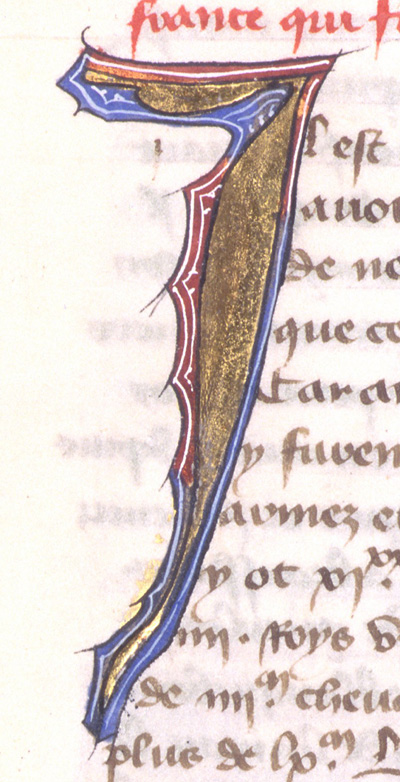 france qui f
Il est
auoi
de no
que ce
Car a
y furen
armez e
y ot xi xx.
iiii. Roys
de iiii m cheua
plus de lx. m